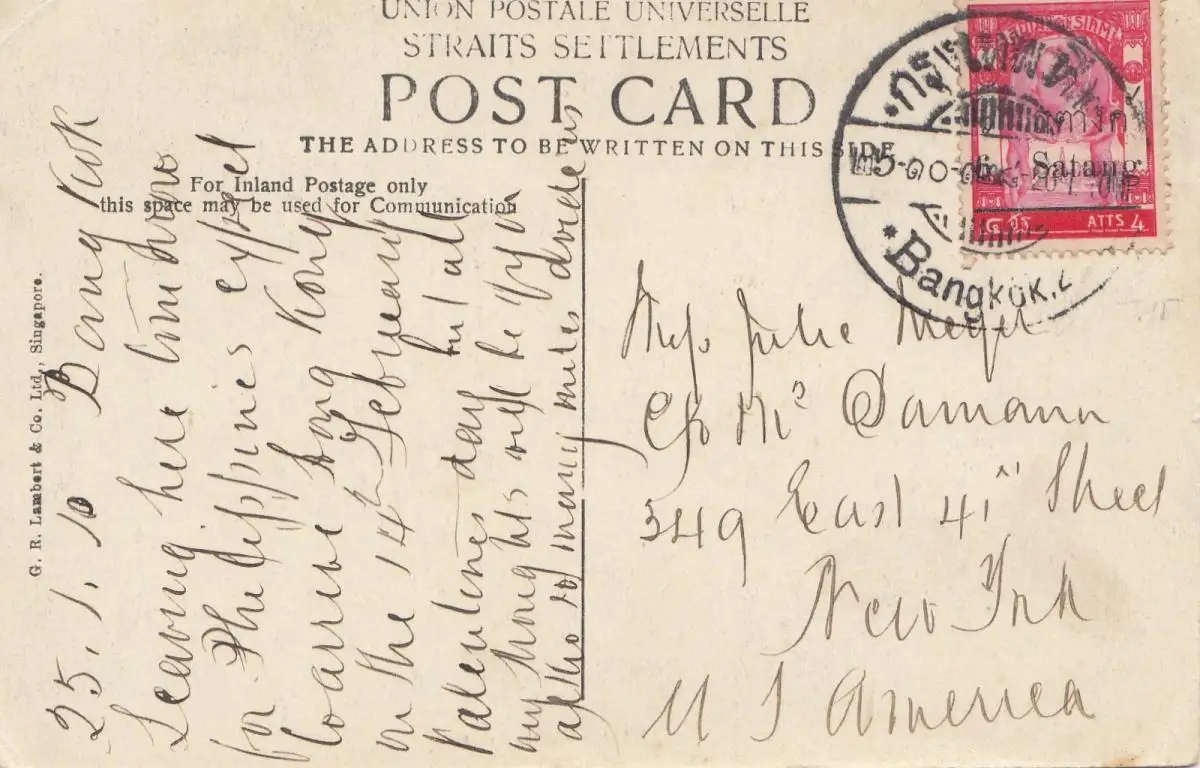 UNION POSTALE UNIVERSELLE
STRAITS SETTLEMENTS
POST CARD
THE ADDRESS TO BE WRITTEN ON THIS SIDE
For Inland Postage only
this space may be used for Communication
G. R. Lambert & Co. Ltd., Singapore.
25.1.10 Bang Kok
Leaving here tomorrow
for Philippines expect
to arrive Hong Kong
on the 14th February
Valentines day but all
my thoughts will be of you
altho so many miles divide us
Miss Julie Meyer
C/o Mrs Damann
349 East 41st Street
New York
U S America
SIAM
Satang
ATTS 4
Bangkok.2